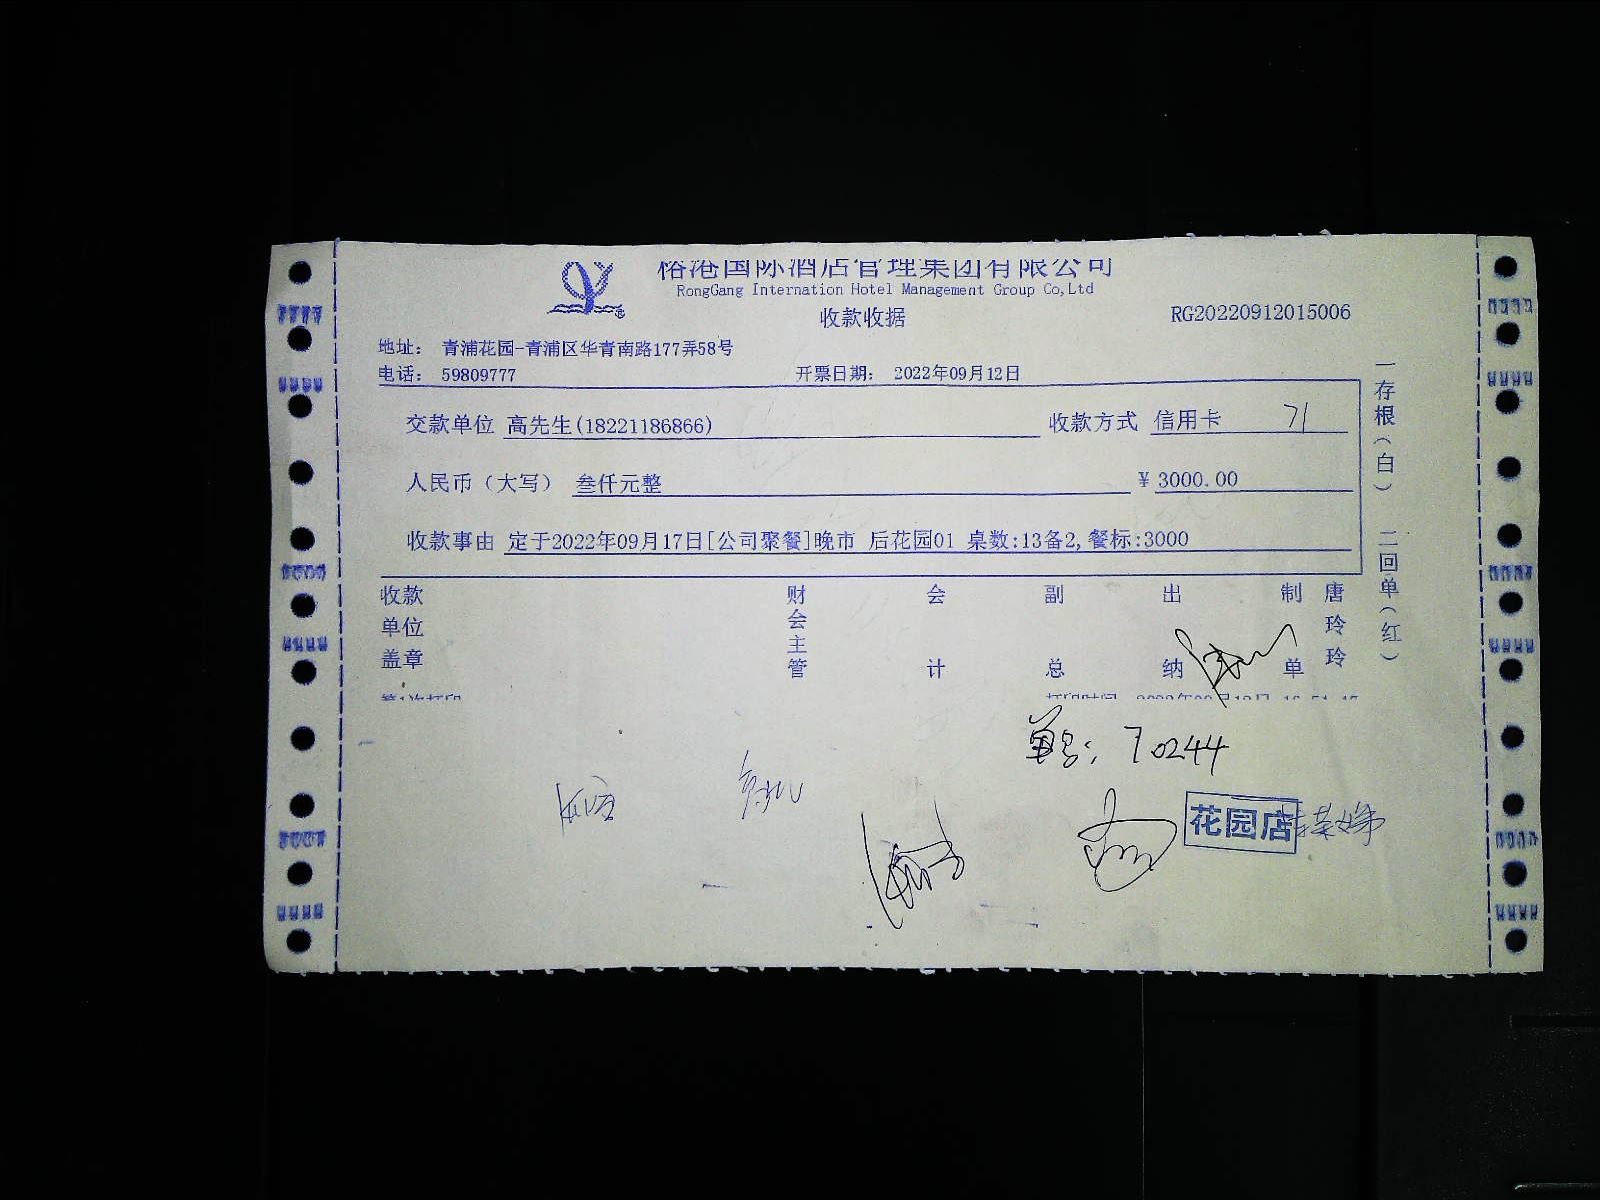 榕港国际酒店管理集团有限公司
RongGang Internation Hotel Management Group Co,Ltd
收款收据
RG20220912015006
地址： 青浦花园-青浦区华青南路177弄58号
电话： 59809777 开票日期： 2022年09月12日
交款单位 高先生(18221186866) 收款方式 信用卡 71
人民币（大写） 叁仟元整 ¥ 3000.00
收款事由 定于2022年09月17日[公司聚餐]晚市 后花园01 桌数:13备2,餐标:3000
收款单位盖章 财会主管 会计 副总 出纳 制单 唐玲玲
一存根（白） 二回单（红）
单号：70244
花园店